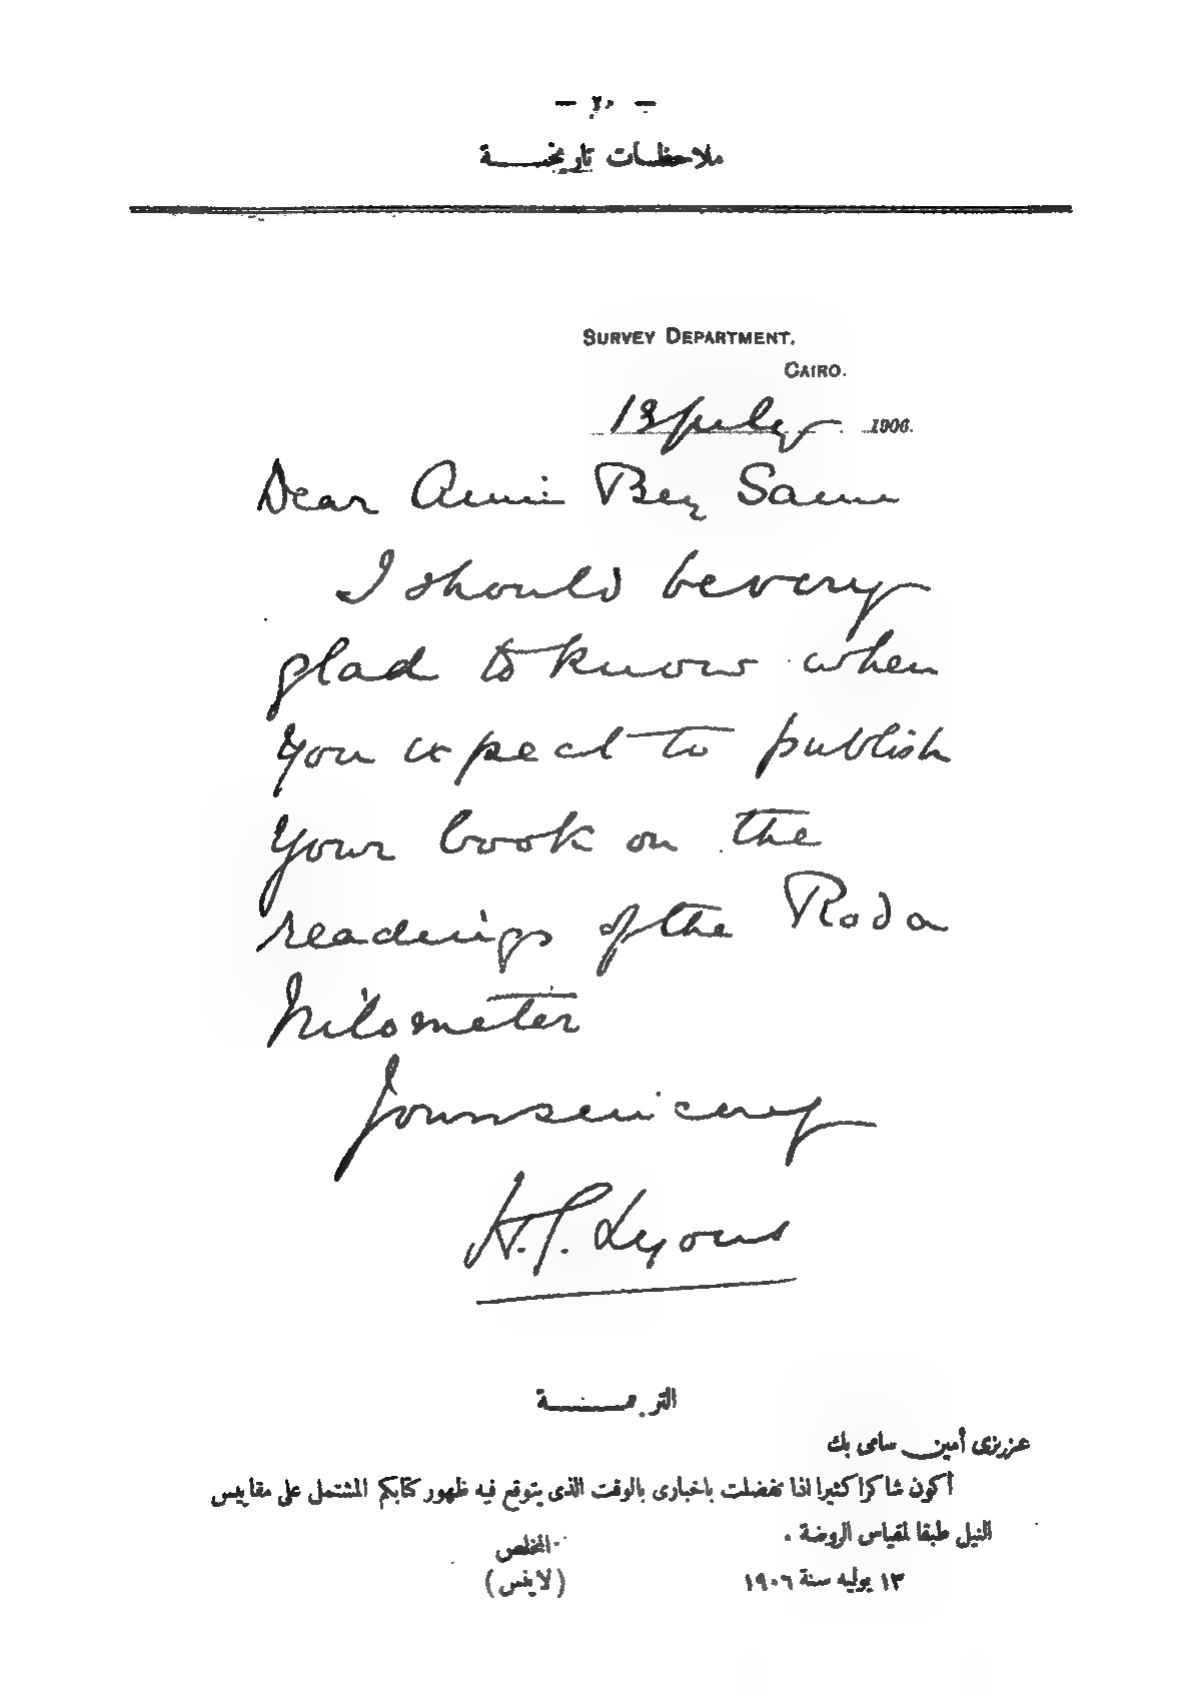 — ٢٠ —
ملاحظات تاريخية
SURVEY DEPARTMENT.
CAIRO.
13 July 1906.
Dear Amin Bey Sami
I should be very
glad to know when
you expect to publish
your book on the
readings of the Roda
Nilometer
Yours sincerely
H. G. Lyons
الترجمة
عزيزى أمين سامى بك
أكون شاكرا كثيرا اذا تفضلت باخبارى بالوقت الذى يتوقع فيه ظهور كتابكم المشتمل على مقاييس
النيل طبقا لمقياس الروضة .
المخلص
١٣ يوليه سنة ١٩٠٦ (لاينس)